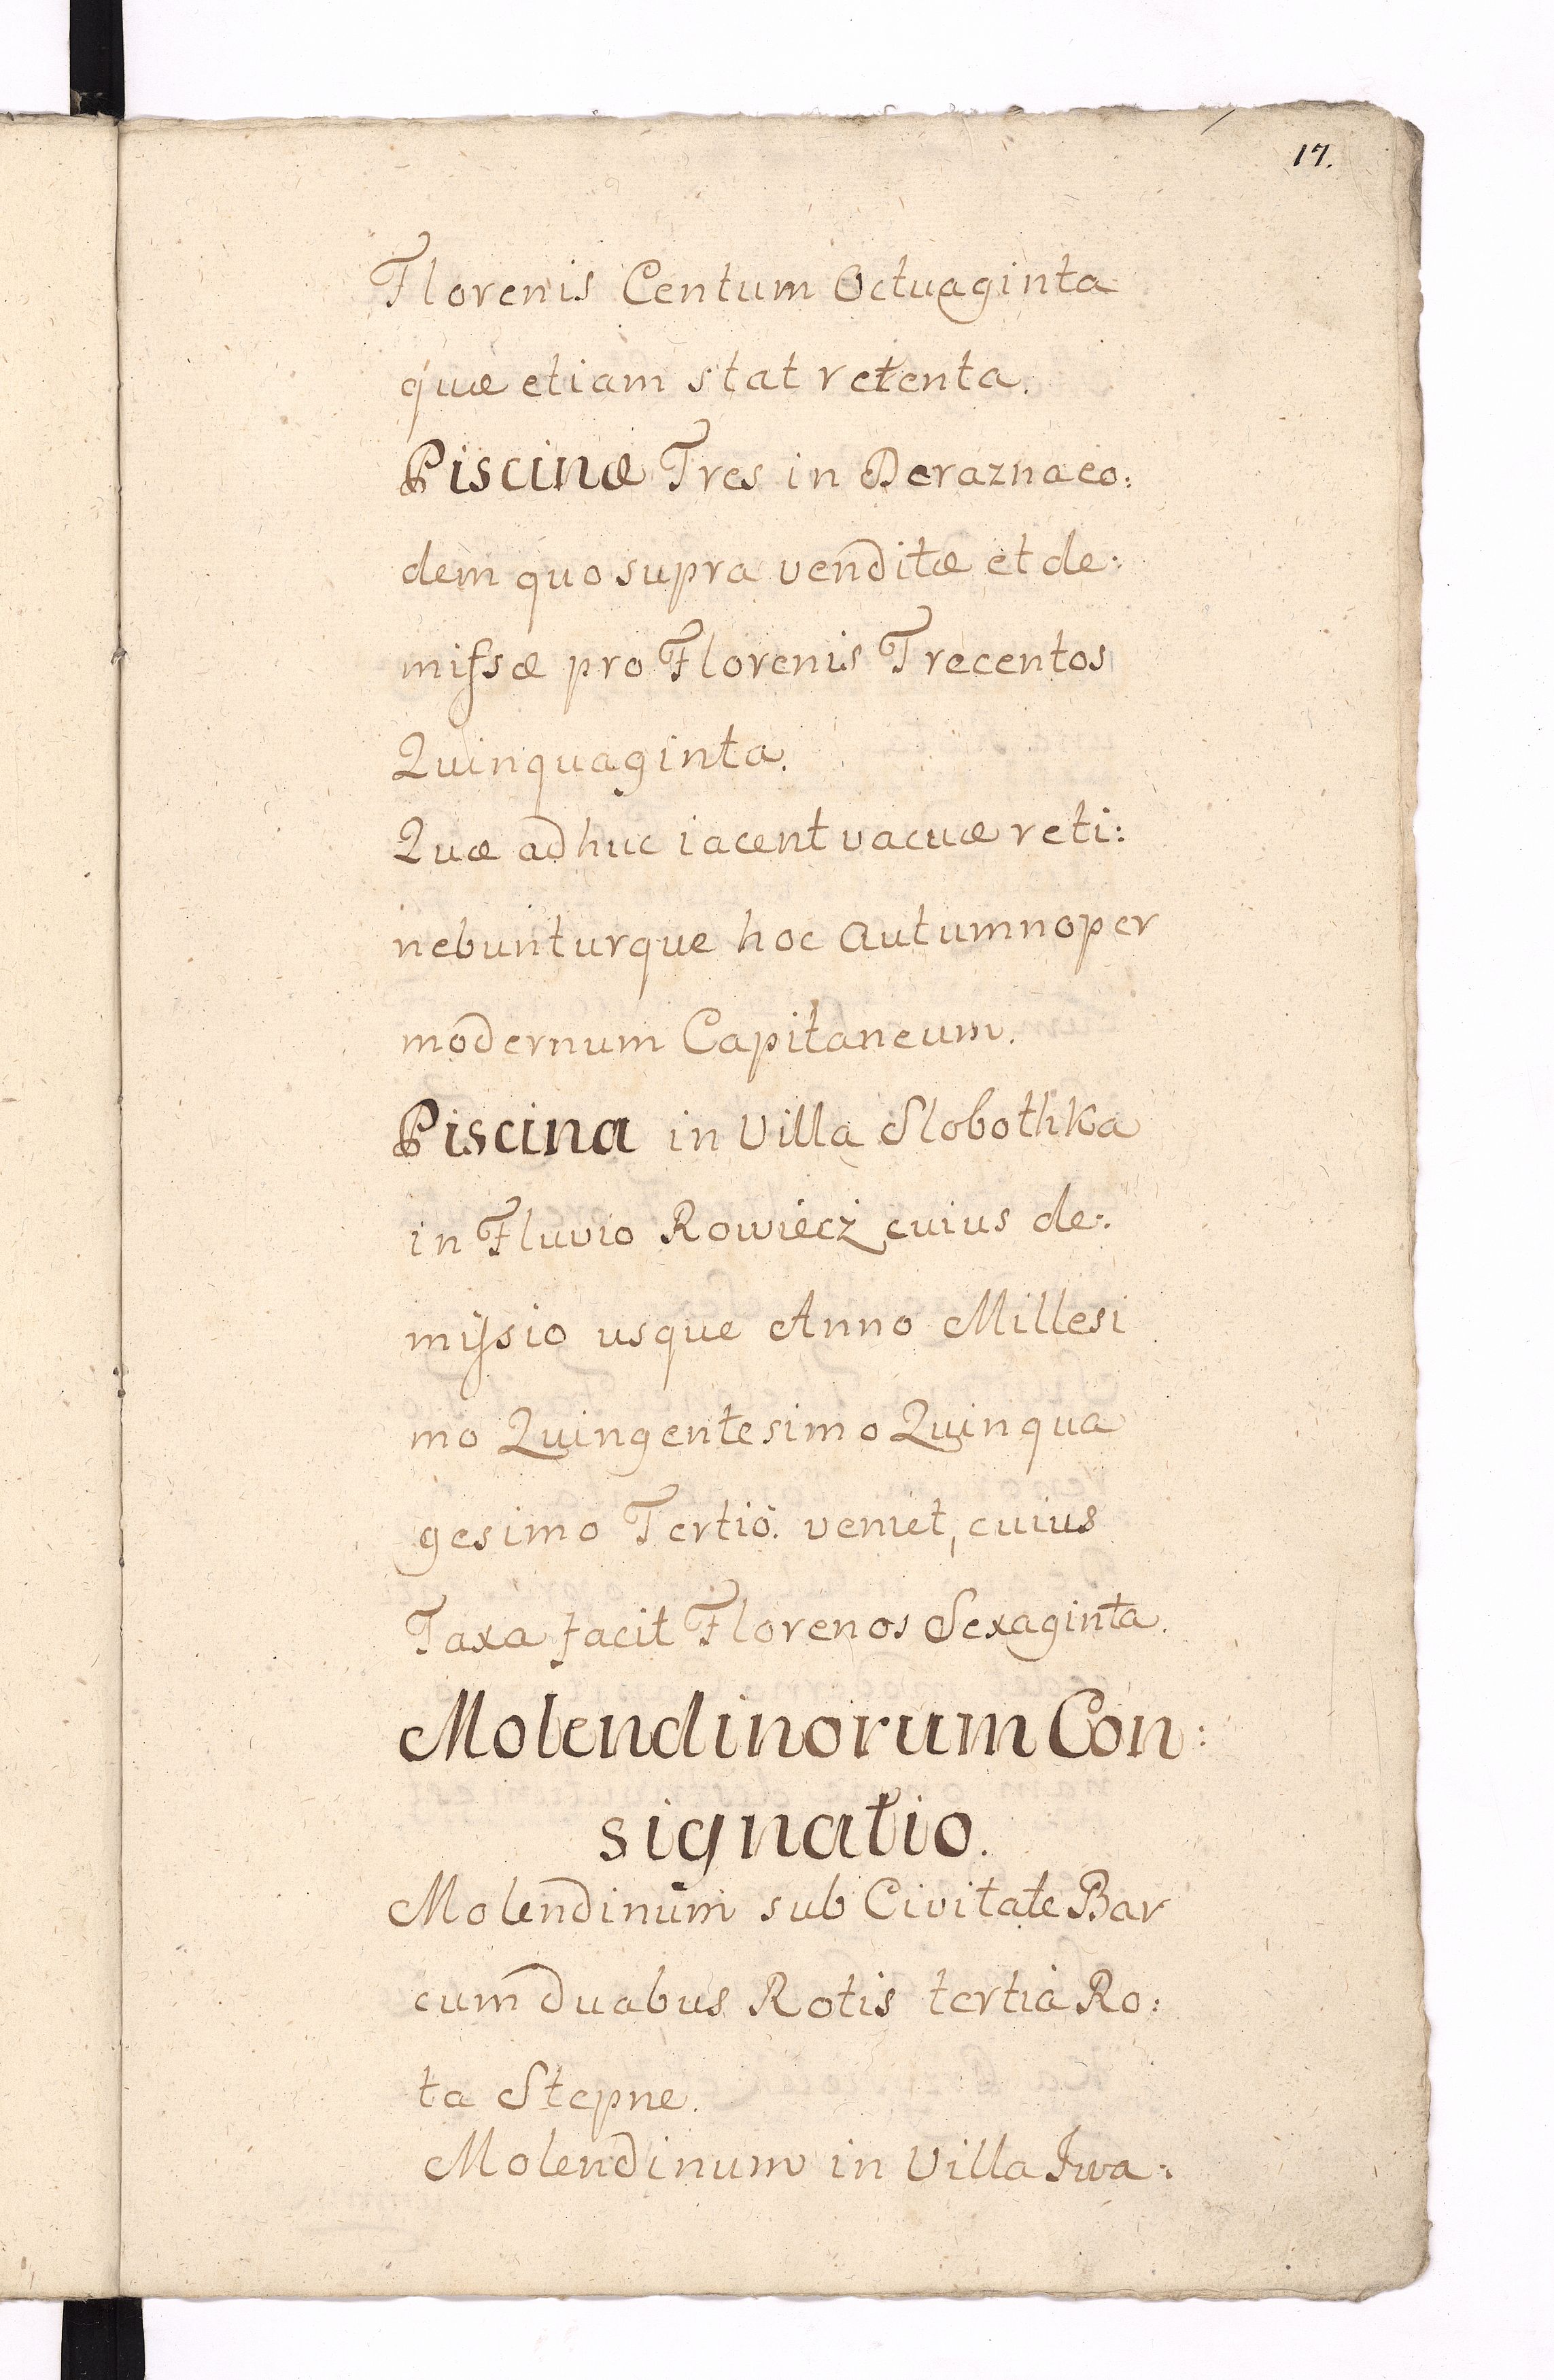 17.
Florenis Centum Octuaginta
quæ etiam stat retenta.
Piscinæ Tres in Deraznaeo:
dem quo supra venditæ et de:
missæ pro Florenis Trecentos
Quinquaginta.
Quæ adhuc iacent vacuæ reti:
nebunturque hoc Autumno per
modernum Capitaneum.
Piscina in Villa Slobothka
in Fluvio Rowiecz cuius de:
missio usque Anno Millesi
mo Quingentesimo Quinqua
gesimo Tertio. veniet, cuius
Taxa facit Florenos Sexaginta.
Molendinorum Con:
signatio.
Molendinum sub Civitate Bar
cum duabus Rotis tertia Ro:
ta Stepne.
Molendinum in Villa Iwa: